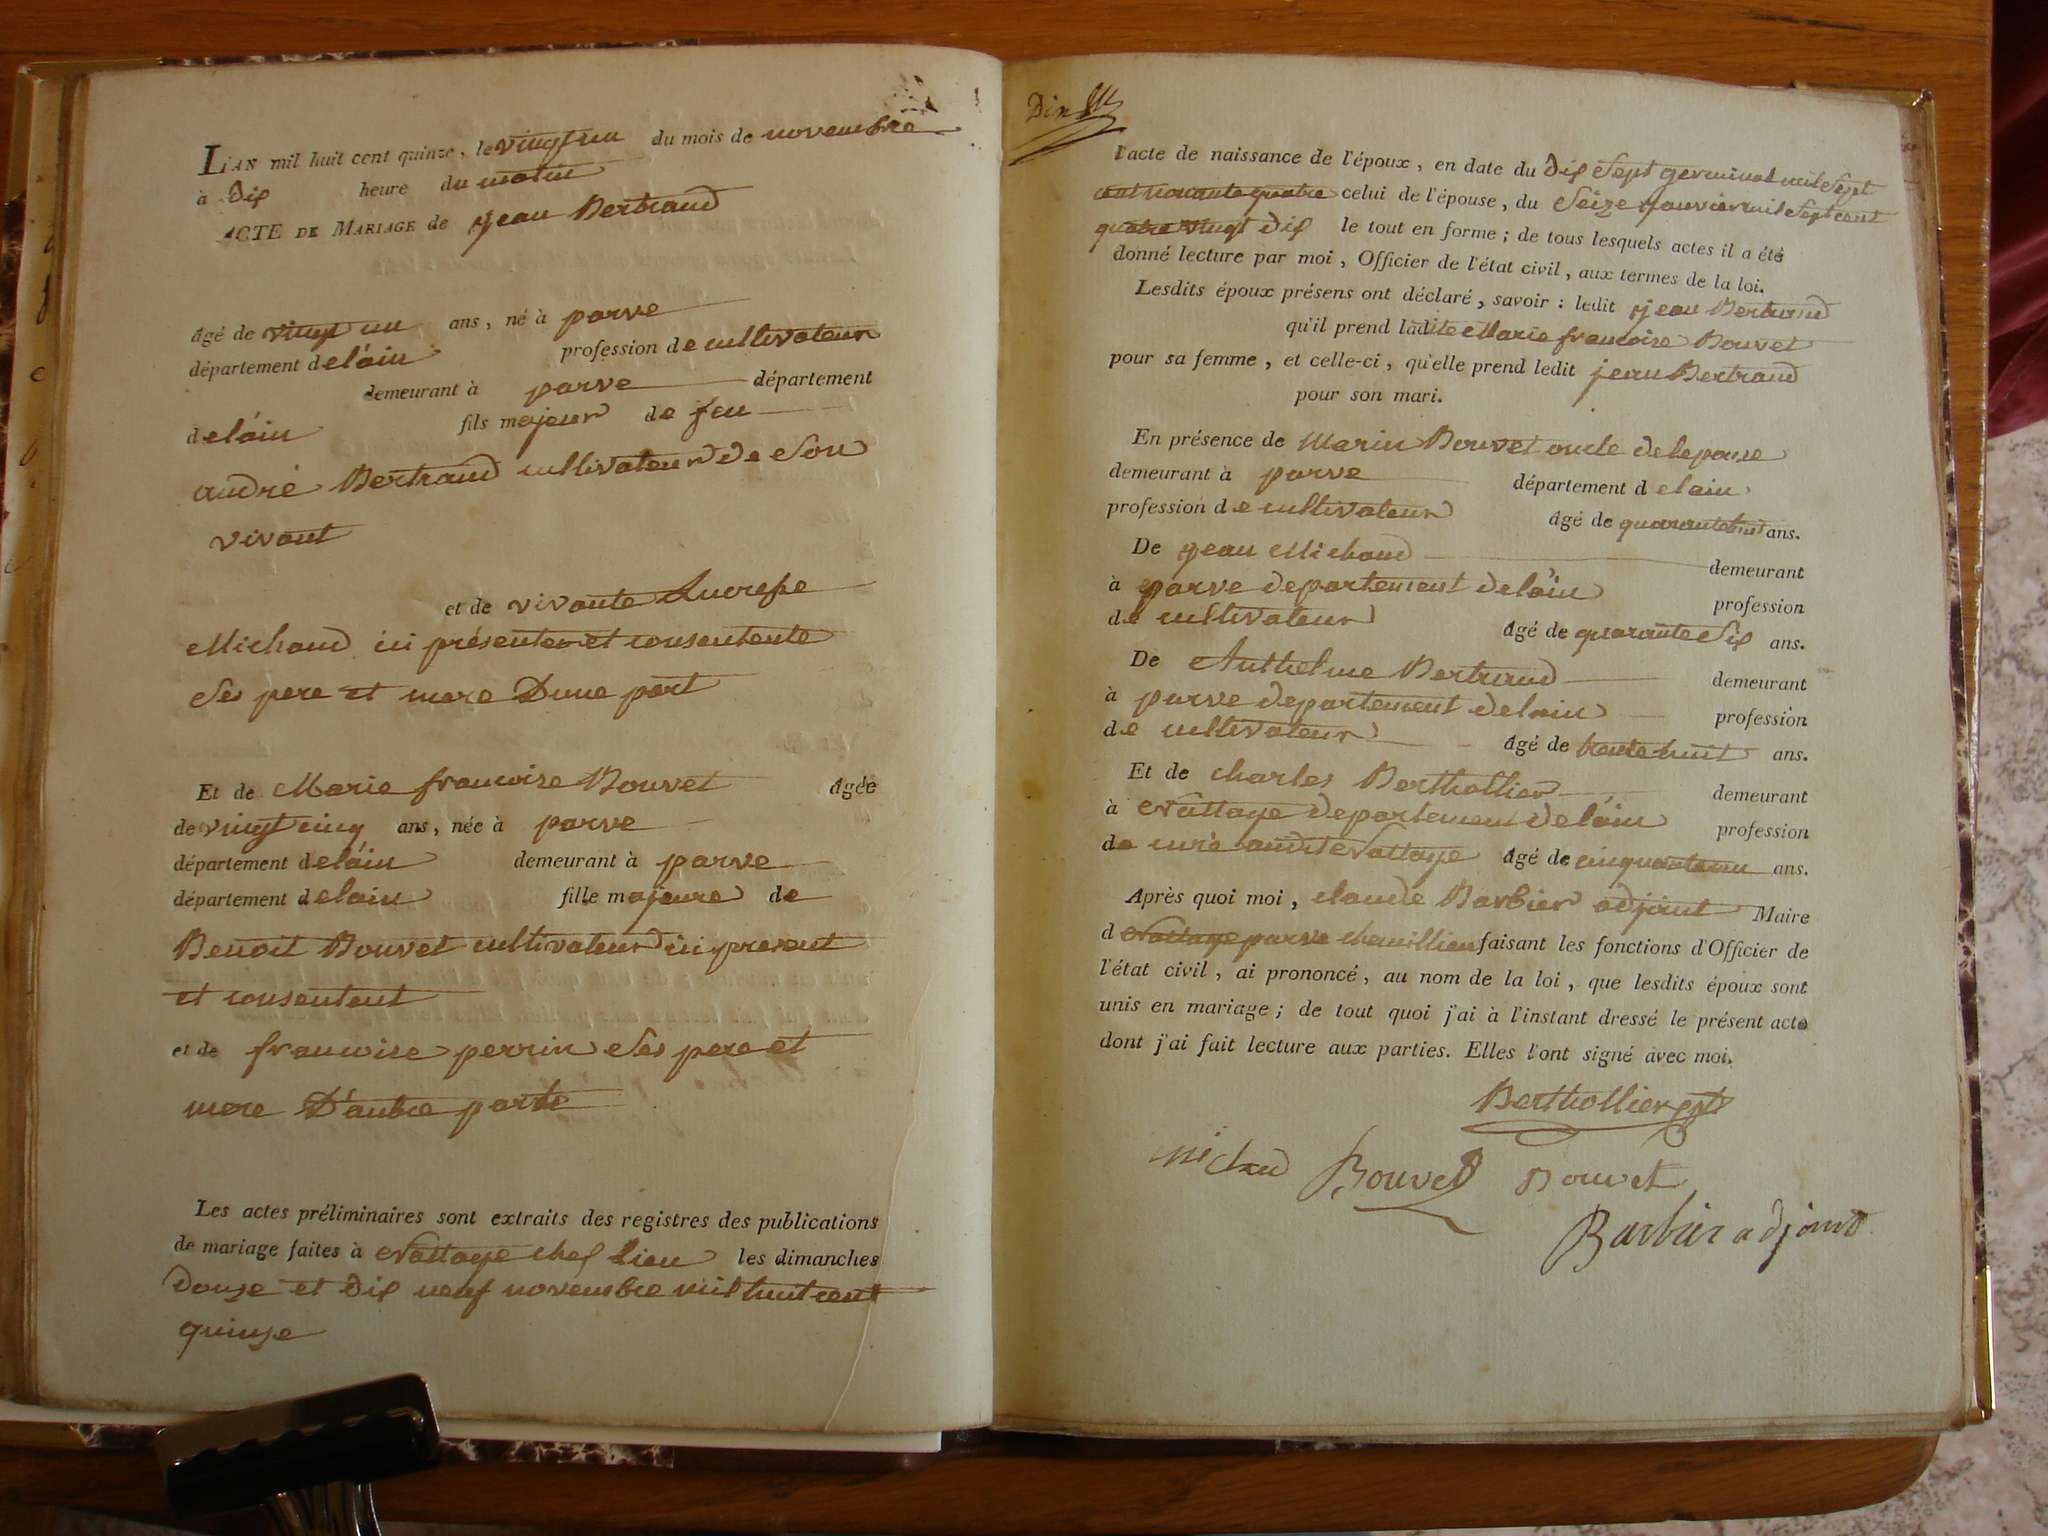 L'AN mil huit cent quinze, le vingt un du mois de novembre
à dix heure du matin
ACTE DE MARIAGE de jean Bertrand
âgé de vingt un ans, né à parve
département delain profession de cultivateur
demeurant à parve département
delain fils majeur de feu
andré Bertrand cultivateur de son
vivant
et de vivante Lucresse
Michaud ici présente et consentente
ses pere et mere Dune part
Et de Marie francoise Bouvet âgée
de vingt cinq ans, née à parve
département delain demeurant à parve
département delain fille majeure de
Benoit Bouvet cultivateur ici present
et consentent
et de francoise perrin ses pere et
mere D'autre parte
Les actes préliminaires sont extraits des registres des publications
de mariage faites à Nattage chef lieu les dimanches
douze et dix neuf novembre mil huit cent
quinze
l'acte de naissance de l'époux, en date du dix sept germinal mil sept
cent nonante quatre celui de l'épouse, du seize janvier mil sept cent
quatre vingt dix le tout en forme; de tous lesquels actes il a été
donné lecture par moi, Officier de l'état civil, aux termes de la loi.
Lesdits époux présens ont déclaré, savoir: ledit jean Bertrand
qu'il prend ladite Marie francoise Bouvet
pour sa femme, et celle-ci, qu'elle prend ledit jean Bertrand
pour son mari.
En présence de Marin Bouvet oncle delepouse
demeurant à parve département delain
profession de cultivateur âgé de ans.
De jean Michaud demeurant
à parve departement delain profession
de cultivateur âgé de quarante six ans.
De Anthelme Bertrand demeurant
à parve departement delain profession
de cultivateur âgé de trente huit ans.
Et de charles Berthollier demeurant
à Nattage departement delain profession
de curé audit Nattage âgé de cinquante un ans.
Après quoi moi, claude Barbier adjoint Maire
d Nattage parve chemillieu faisant les fonctions d'Officier de
l'état civil, ai prononcé, au nom de la loi, que lesdits époux sont
unis en mariage; de tout quoi j'ai à l'instant dressé le présent acte
dont j'ai fait lecture aux parties. Elles l'ont signé avec moi.
Berthollier
michaud Bouvet Bouvet
Barbier adjoint